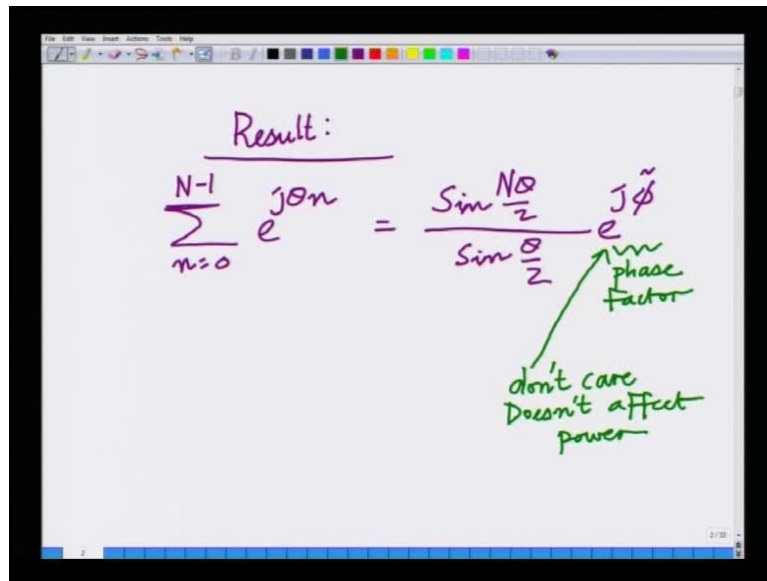 File Edit View Insert Actions Tools Help
Result:
N-1
∑ e^{jθn} = \frac{Sin \frac{Nθ}{2}}{Sin \frac{θ}{2}} e^{j\tilde{ϕ}}
n=0
phase
factor
don't care
Doesn't affect
power
2/33
2